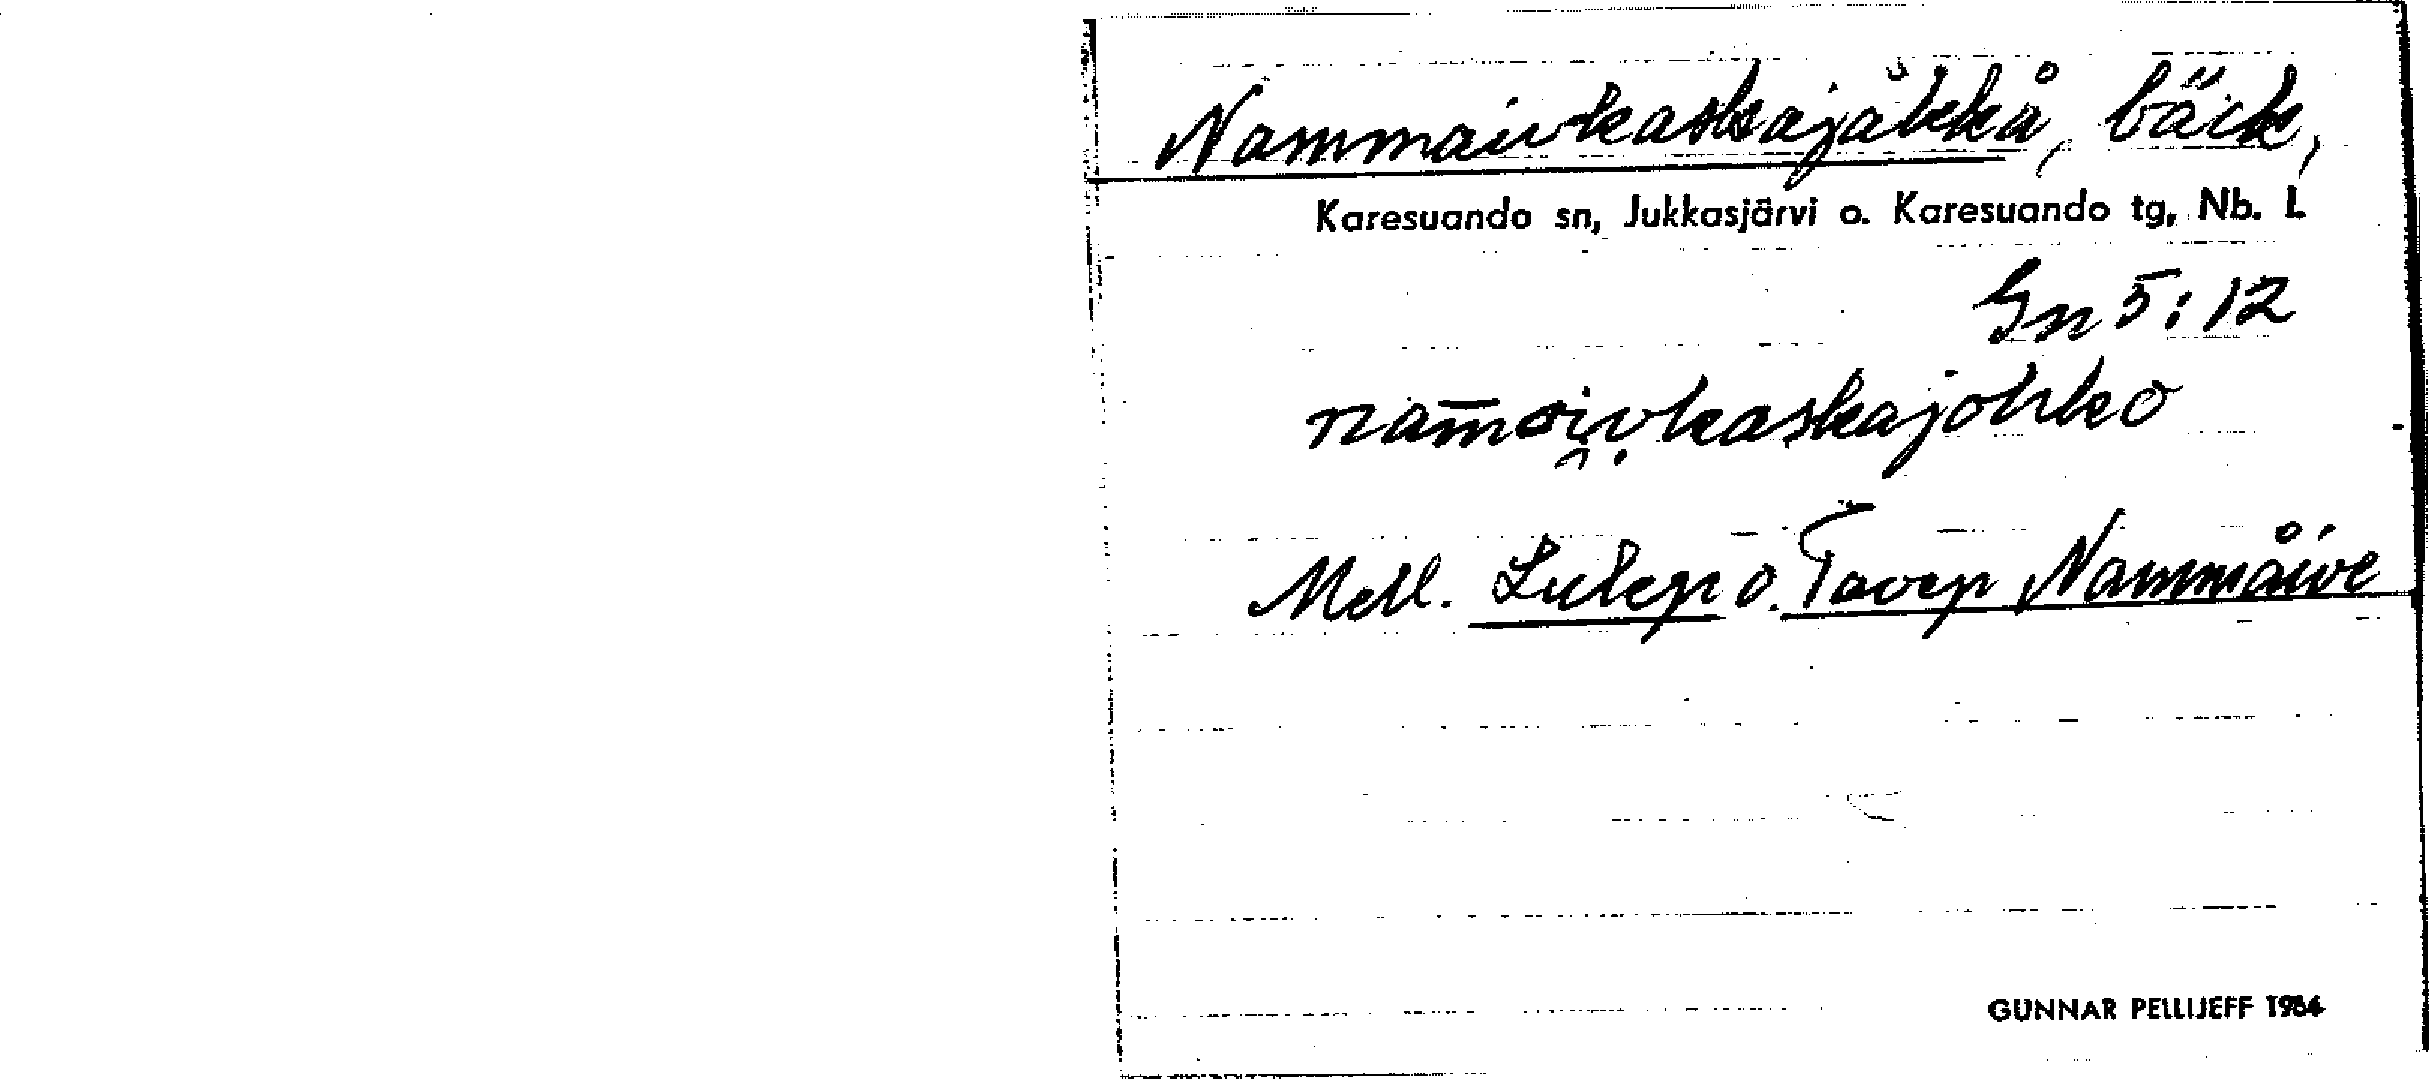 Nammaivkaskajåkkå, bäck,
Karesuando sn, Jukkasjärvi o. Karesuando tg, Nb. L
Gn 5:12
nam̄aivkaskajohko
Mell. Lulep o. Tavep Nammåive
GUNNAR PELLIJEFF 1964